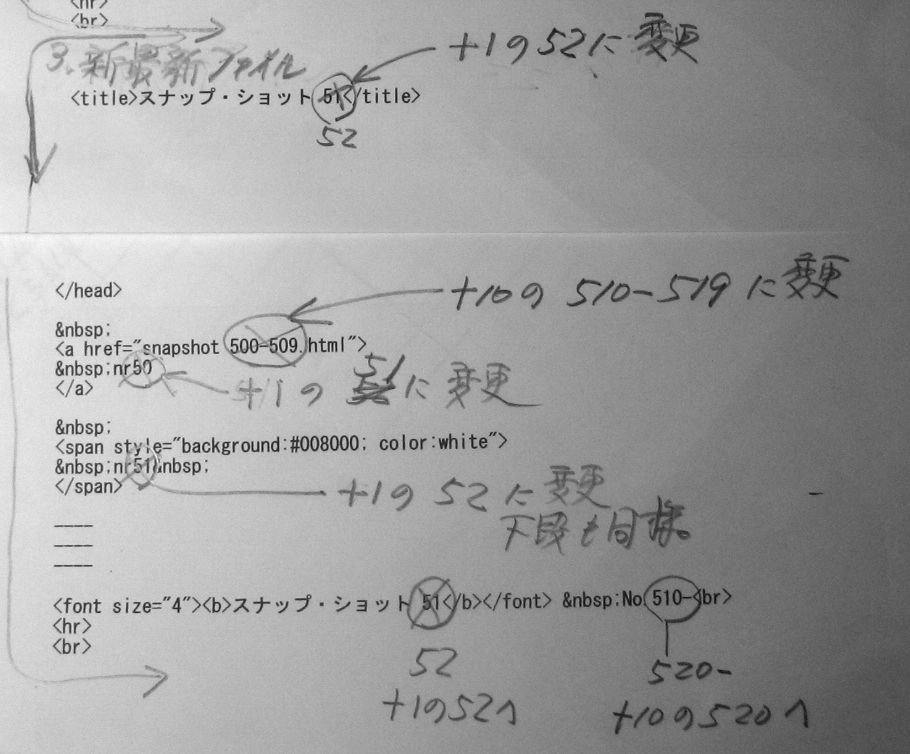 <hr>
<br>
+1の52に変更
3. 新最新ファイル
<title>スナップ・ショット 51</title>
52
</head>
+10の 510-519 に変更
&nbsp;
<a href="snapshot 500-509.html">
&nbsp;nr50
</a>
+1の 51に変更
&nbsp;
<span style="background:#008000; color:white">
&nbsp;nr51&nbsp;
</span>
+1の 52に変更
下段も同様。
____
____
____
<font size="4"><b>スナップ・ショット 51</b></font> &nbsp;No 510-<br>
<hr>
<br>
52
520-
+1の52へ
+10の520へ